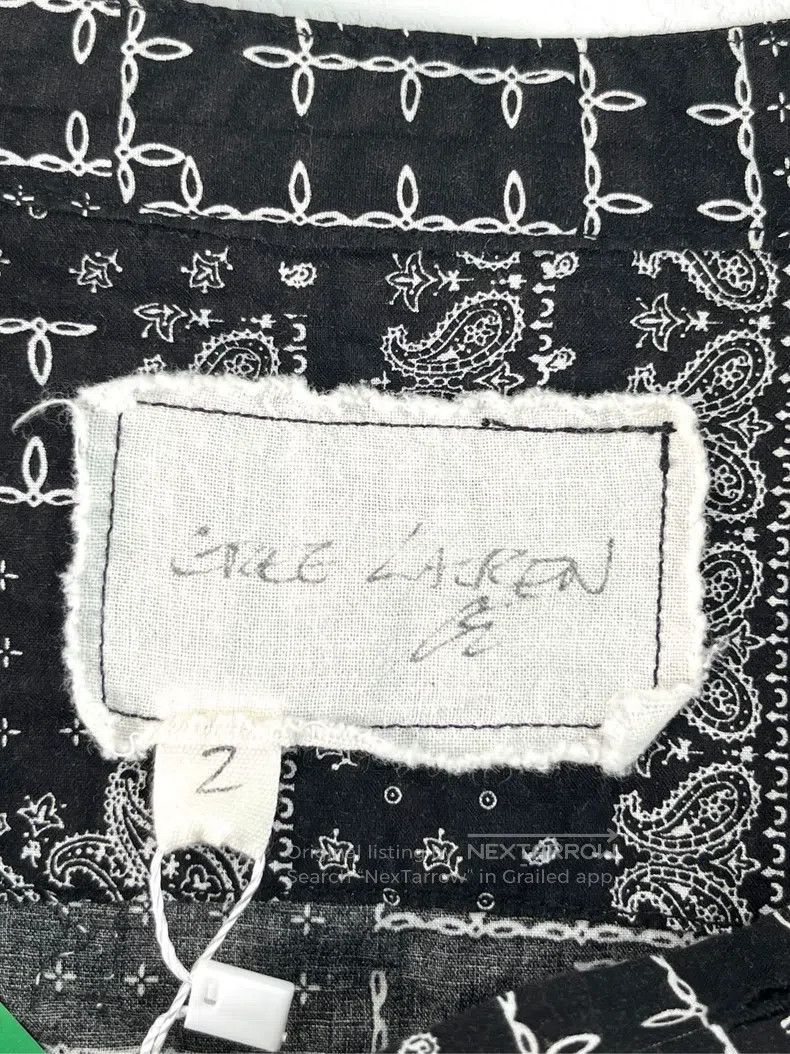 GREG LAUREN
2
Original listing NEXTARROW
Search "NexTarrow" in Grailed app